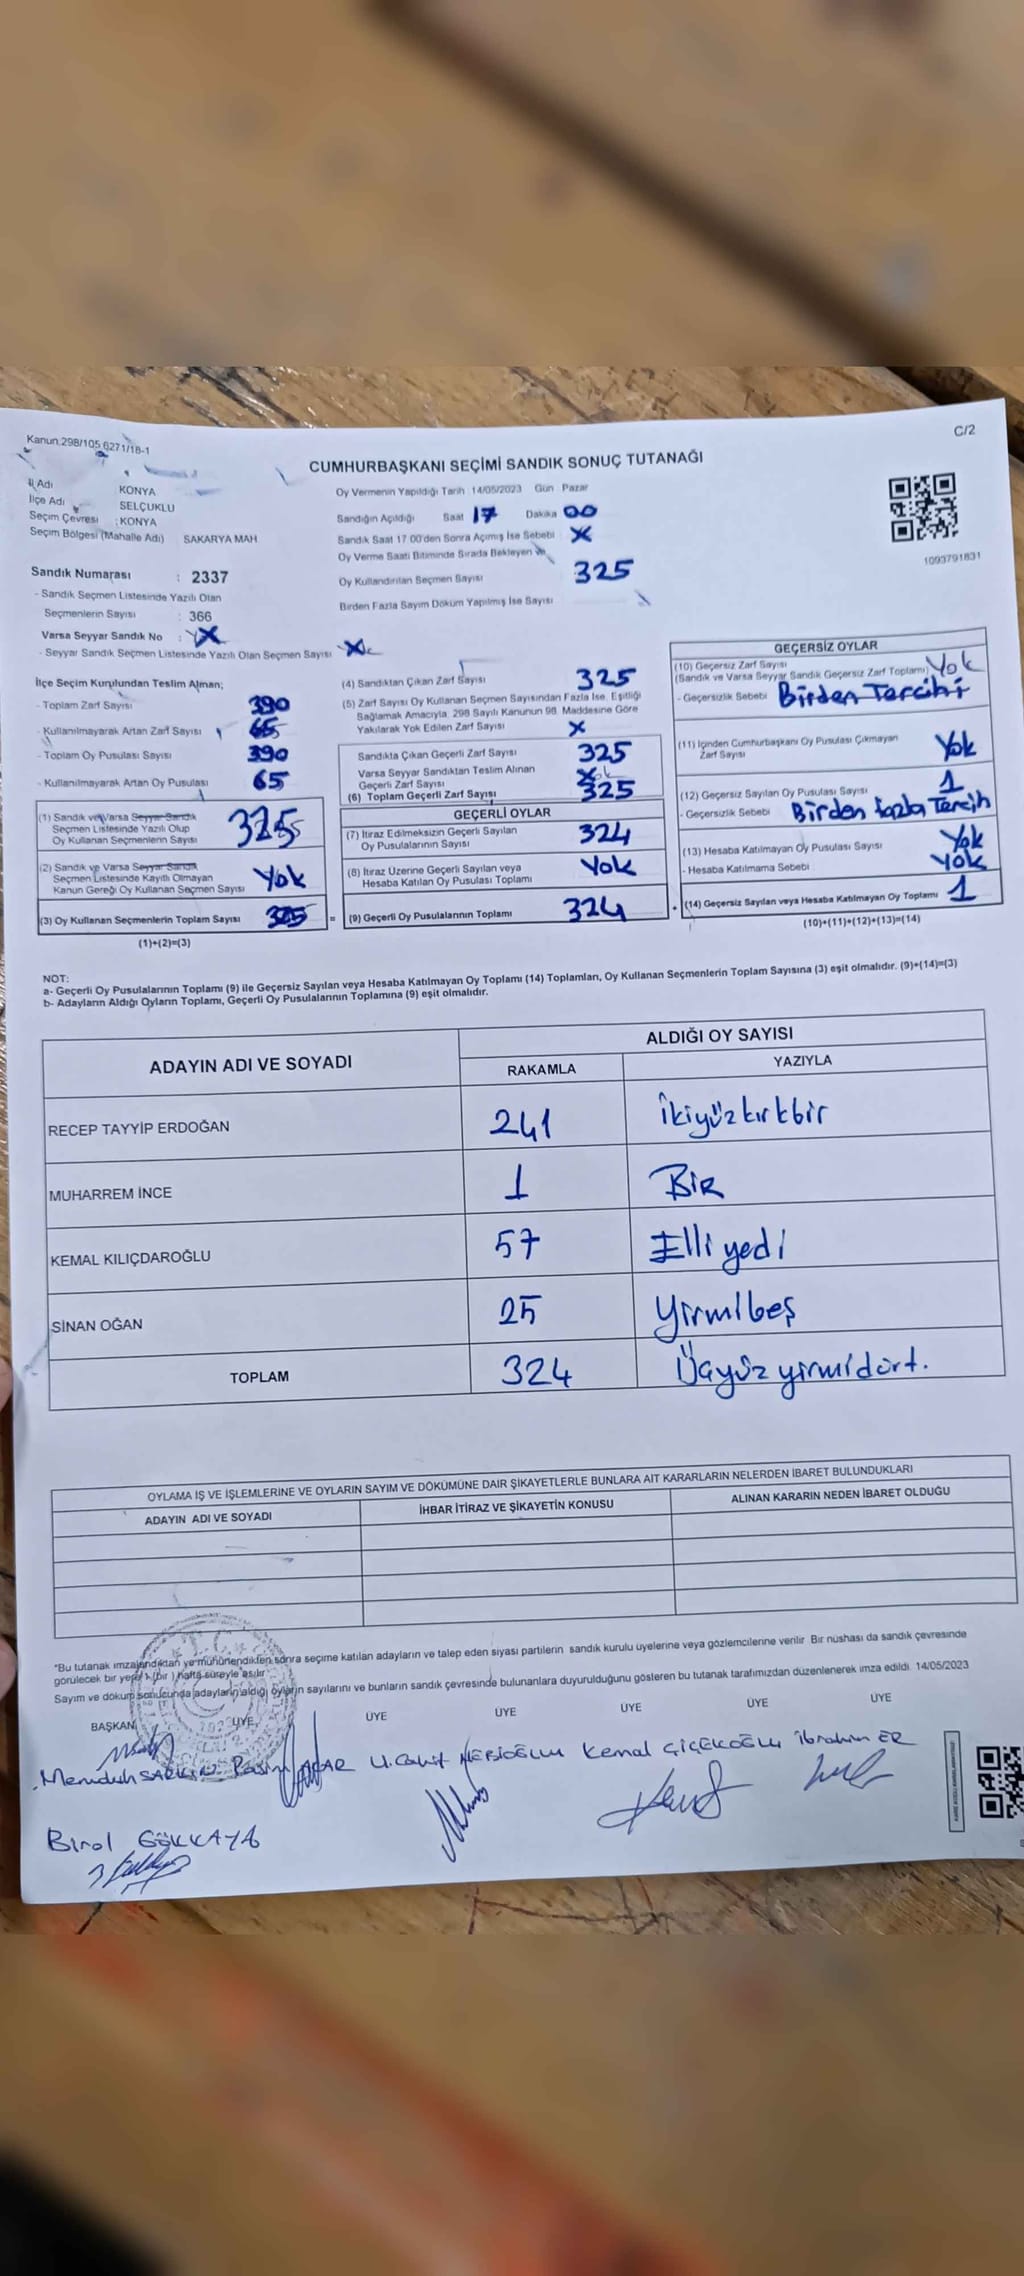 Kanun:298/105 6271/18-1
C/2
CUMHURBAŞKANI SEÇİMİ SANDIK SONUÇ TUTANAĞI
İl Adı KONYA
İlçe Adı SELÇUKLU
Seçim Çevresi : KONYA
Seçim Bölgesi (Mahalle Adı) SAKARYA MAH
Sandık Numarası : 2337
- Sandık Seçmen Listesinde Yazılı Olan
Seçmenlerin Sayısı : 366
Varsa Seyyar Sandık No : X
- Seyyar Sandık Seçmen Listesinde Yazılı Olan Seçmen Sayısı X
Oy Vermenin Yapıldığı Tarih 14/05/2023 Gün Pazar
Sandığın Açıldığı Saat 17 Dakika 00
Sandık Saat 17.00'den Sonra Açmış İse Sebebi X
Oy Verme Saati Bitiminde Sırada Bekleyen ve
Oy Kullandırılan Seçmen Sayısı 325
Birden Fazla Sayım Döküm Yapılmış İse Sayısı
1093791831
İlçe Seçim Kurulundan Teslim Alınan;
- Toplam Zarf Sayısı 390
- Kullanılmayarak Artan Zarf Sayısı 65
- Toplam Oy Pusulası Sayısı 390
- Kullanılmayarak Artan Oy Pusulası 65
(1) Sandık ve Varsa Seyyar Sandık
Seçmen Listesinde Yazılı Olup
Oy Kullanan Seçmenlerin Sayısı 325
(2) Sandık ve Varsa Seyyar Sandık
Seçmen Listesinde Kayıtlı Olmayan
Kanun Gereği Oy Kullanan Seçmen Sayısı Yok
(3) Oy Kullanan Seçmenlerin Toplam Sayısı 325
=
(1)+(2)=(3)
(4) Sandıktan Çıkan Zarf Sayısı 325
(5) Zarf Sayısı Oy Kullanan Seçmen Sayısından Fazla İse, Eşitliği
Sağlamak Amacıyla, 298 Sayılı Kanunun 98. Maddesine Göre
Yakılarak Yok Edilen Zarf Sayısı X
Sandıkta Çıkan Geçerli Zarf Sayısı 325
Varsa Seyyar Sandıktan Teslim Alınan
Geçerli Zarf Sayısı
(6) Toplam Geçerli Zarf Sayısı 325
GEÇERLİ OYLAR
(7) İtiraz Edilmeksizin Geçerli Sayılan
Oy Pusulalarının Sayısı 324
(8) İtiraz Üzerine Geçerli Sayılan veya
Hesaba Katılan Oy Pusulası Toplamı Yok
(9) Geçerli Oy Pusulalarının Toplamı 324
+
GEÇERSİZ OYLAR
(10) Geçersiz Zarf Sayısı
(Sandık ve Varsa Seyyar Sandık Geçersiz Zarf Toplamı) Yok
- Geçersizlik Sebebi Birden Tercihi
(11) İçinden Cumhurbaşkanı Oy Pusulası Çıkmayan
Zarf Sayısı Yok
(12) Geçersiz Sayılan Oy Pusulası Sayısı 1
- Geçersizlik Sebebi Birden fazla Tercih
(13) Hesaba Katılmayan Oy Pusulası Sayısı Yok
- Hesaba Katılmama Sebebi Yok
(14) Geçersiz Sayılan veya Hesaba Katılmayan Oy Toplamı 1
(10)+(11)+(12)+(13)=(14)
NOT:
a- Geçerli Oy Pusulalarının Toplamı (9) ile Geçersiz Sayılan veya Hesaba Katılmayan Oy Toplamı (14) Toplamları, Oy Kullanan Seçmenlerin Toplam Sayısına (3) eşit olmalıdır. (9)+(14)=(3)
b- Adayların Aldığı Oyların Toplamı, Geçerli Oy Pusulalarının Toplamına (9) eşit olmalıdır.
ADAYIN ADI VE SOYADI ALDIĞI OY SAYISI
RAKAMLA YAZIYLA
RECEP TAYYİP ERDOĞAN 241 İkiyüzkırkbir
MUHARREM İNCE 1 Bir
KEMAL KILIÇDAROĞLU 57 Elli yedi
SİNAN OĞAN 25 Yirmibeş
TOPLAM 324 Üçyüz yirmidört.
OYLAMA İŞ VE İŞLEMLERİNE VE OYLARIN SAYIM VE DÖKÜMÜNE DAİR ŞİKAYETLERLE BUNLARA AİT KARARLARIN NELERDEN İBARET BULUNDUKLARI
ADAYIN ADI VE SOYADI İHBAR İTİRAZ VE ŞİKAYETİN KONUSU ALINAN KARARIN NEDEN İBARET OLDUĞU
*Bu tutanak imzalandıktan ve mühürlendikten sonra seçime katılan adayların ve talep eden siyasi partilerin sandık kurulu üyelerine veya gözlemcilerine verilir Bir nüshası da sandık çevresinde
görülecek bir yere 1 (bir ) hafta süreyle asılır
Sayım ve döküm sonucunda adayların aldığı oyların sayılarını ve bunların sandık çevresinde bulunanlara duyurulduğunu gösteren bu tutanak tarafımızdan düzenlenerek imza edildi. 14/05/2023
BAŞKAN ÜYE ÜYE ÜYE ÜYE ÜYE ÜYE
Memduh Kemal ÇİÇEKOĞLU İbrahim ER
Birol GÖKKAYA